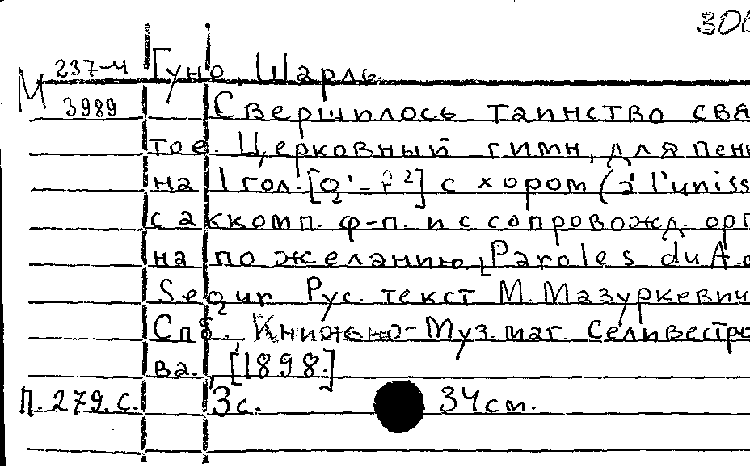 306
237-4 Гуно, Шарль
М 3989 Свершилось таинство свя
тое. Церковный гимн, для пен
на 1 гол. с хором (à l'uniss
с аккомп. ф-п. и с сопровожд. орг
на по желанию. Paroles du A
Segur Рус. текст М. Мазуркевич
Спб., Книжно-Муз. маг. Селивестро
ва. [1898.]
П. 279. с. 3с. 34 см.